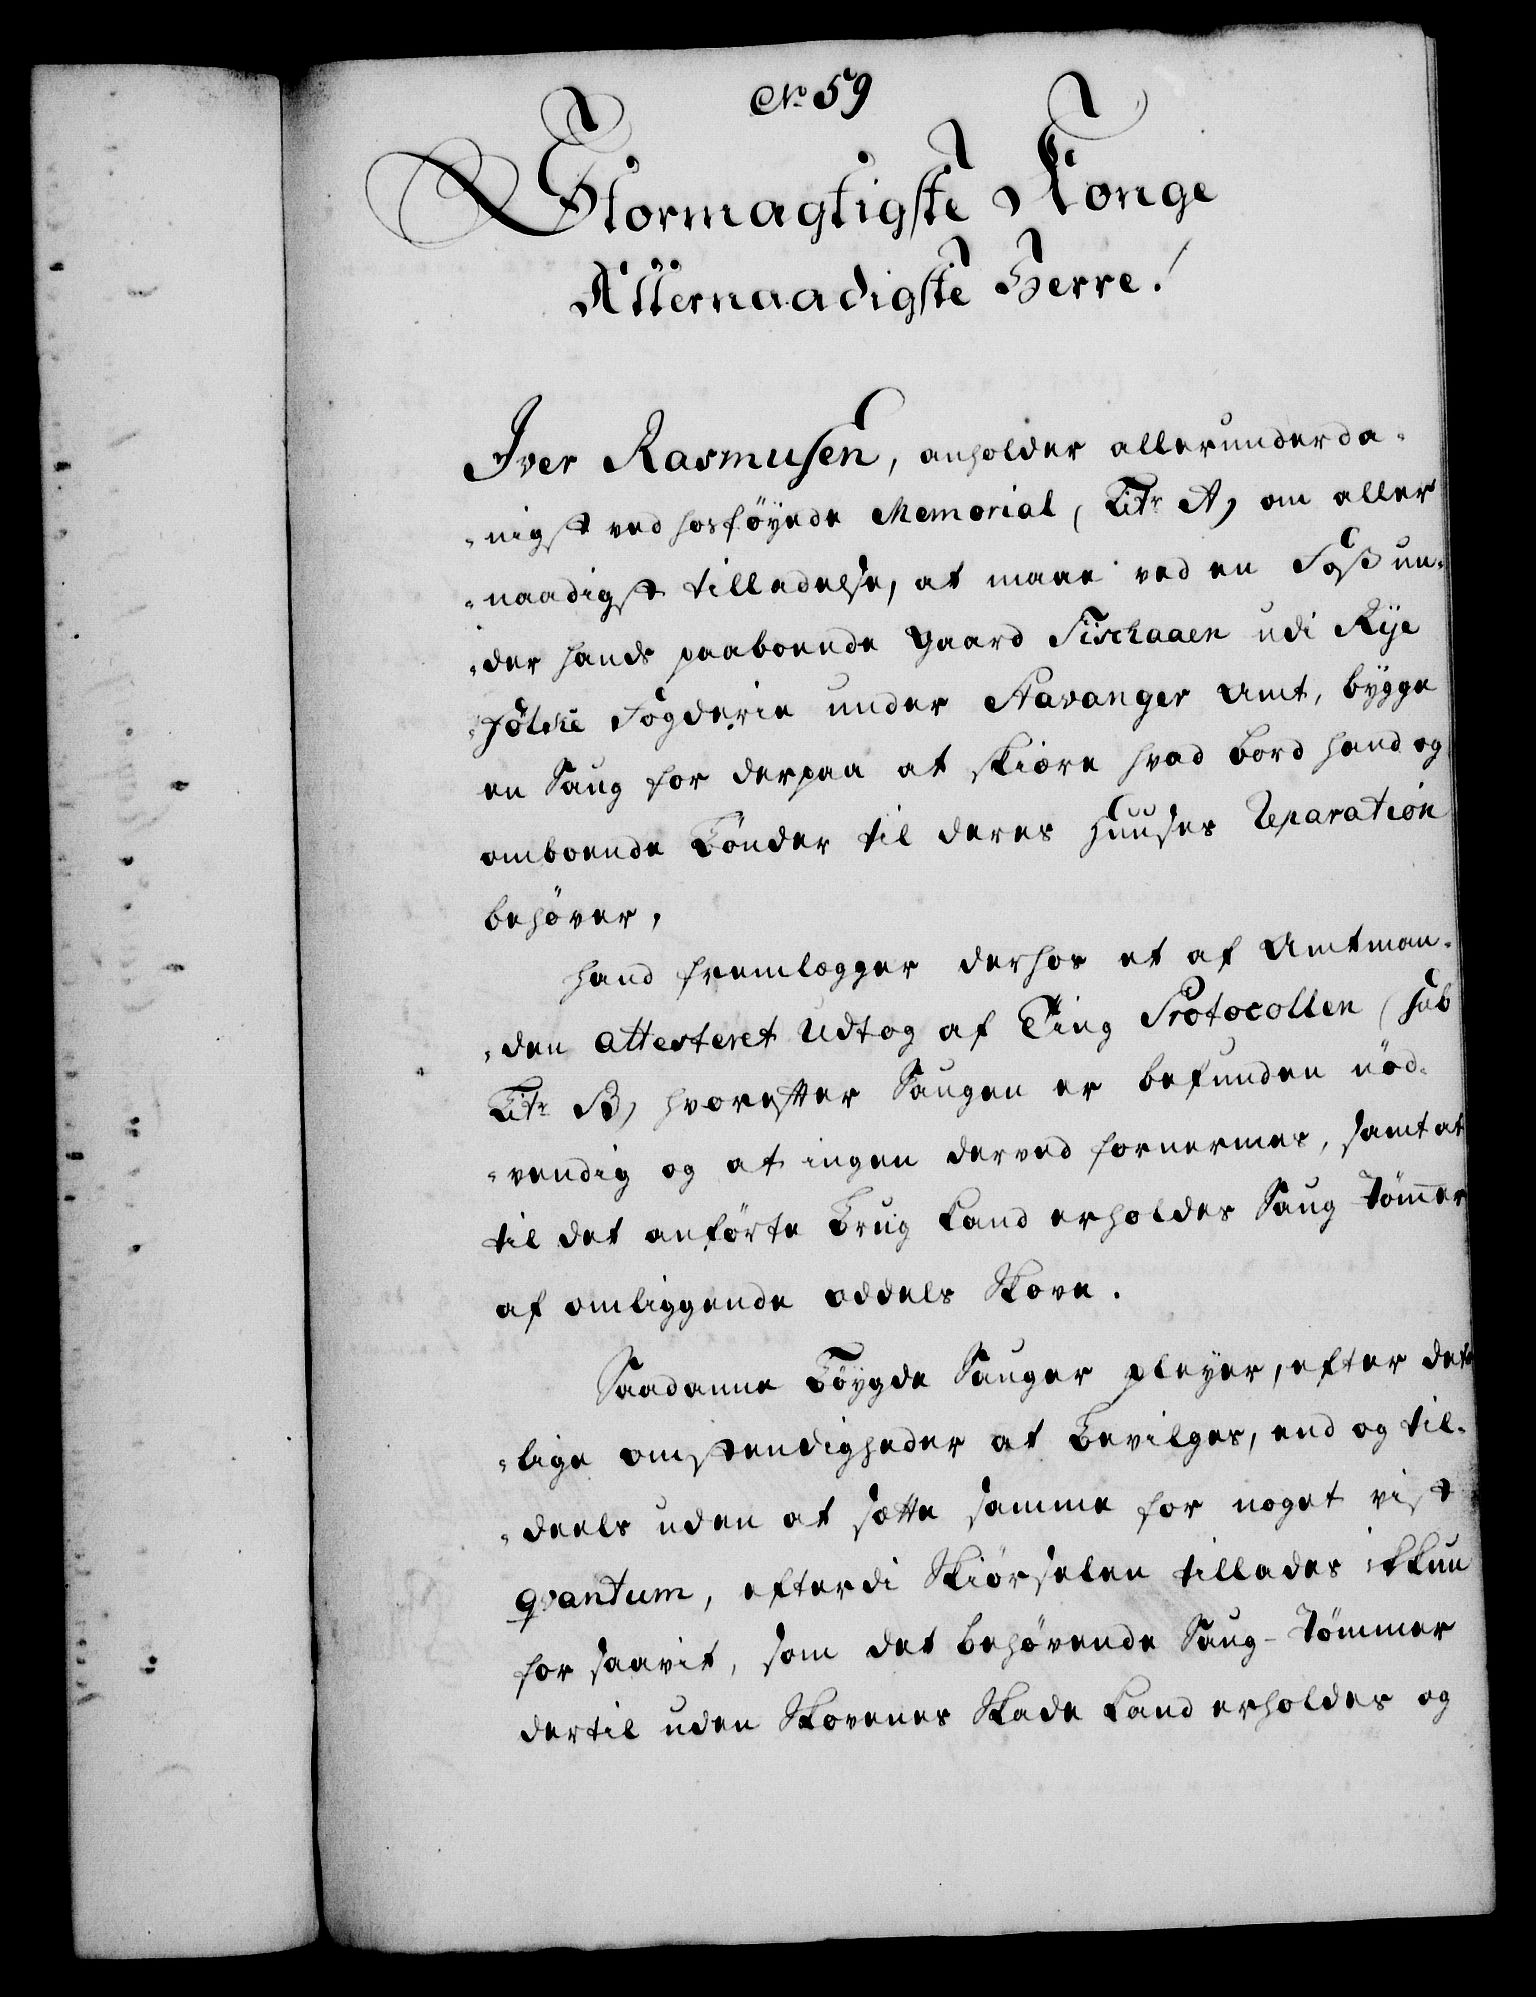 No 59
Stormægtigste Konge
Allernaadigste Herre!
Iver Rasmusen, anholder allerunderda-
-nigst ved hosföyede Memorial, (Litr A) om aller
-naadigst tilladelse, at maae ved en Foss un-
-der hands paaboende Gaard Fischaaen udi Rye
-fölke Fogderie under Stavanger Amt, bygge
en Saug for derpaa at skiære hvad bord hand og
omboende Bönder til deres Huuses Reparation
behöver,
Hand fremlægger derhos et af Amtman-
-den attesteret Udtog af Ting Protocollen (sub
Litr B) hvorefter Saugen er befunden nöd-
-vendig og at ingen derved fornermes, samt at
til det anförte Brug kand erholdes Saug Tömer
af omliggende oddels Skove.
Saadanne Böygde Sauger pleyer, efter des-
-lige omstendigheder at Bevilges, end og til-
-deels uden at sætte samme for noget vist
qvantum, efterdi Skiörselen tillades ikkun
for saavit, som det behövende Saug-Tömmer
dertil uden Skovenes Skade kand erholdes og